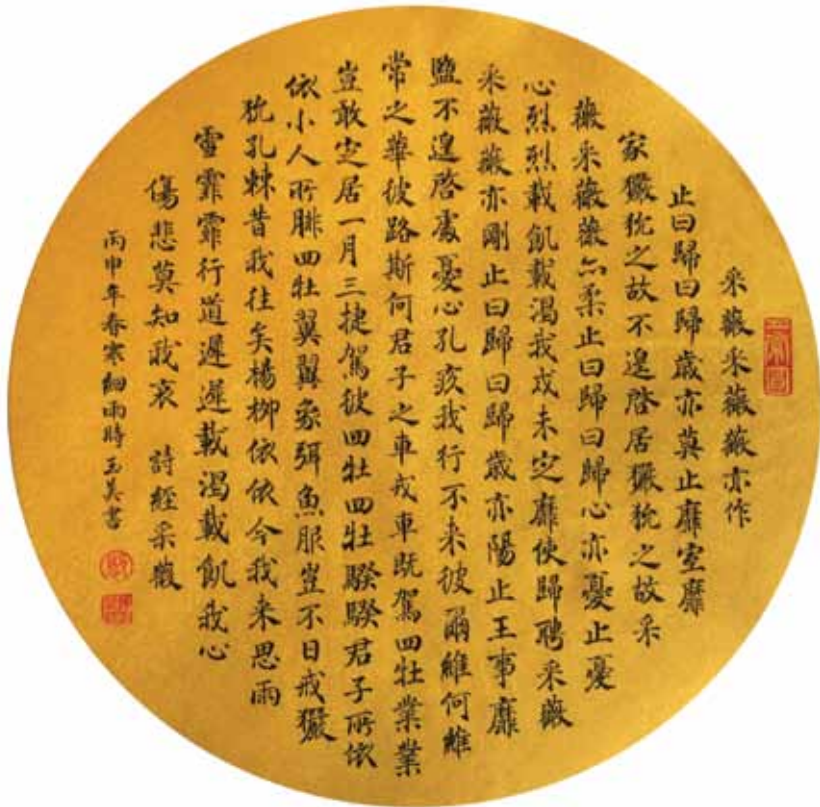 采薇采薇薇亦作
止曰歸曰歸歲亦莫止靡室靡
家玁狁之故不遑啓居玁狁之故采
薇采薇薇亦柔止曰歸曰歸心亦憂止憂
心烈烈載飢載渴我戍未定靡使歸聘采薇
采薇薇亦剛止曰歸曰歸歲亦陽止王事靡
盬不遑啓處憂心孔疚我行不来彼爾維何維
常之華彼路斯何君子之車戎車既駕四牡業業
豈敢定居一月三捷駕彼四牡四牡騤騤君子所依
依小人所腓四牡翼翼象弭魚服豈不日戒玁
狁孔棘昔我往矣楊柳依依今我来思雨
雪霏霏行道遲遲載渴載飢我心
傷悲莫知我哀 詩經采薇
丙申年春寒細雨時玉美書